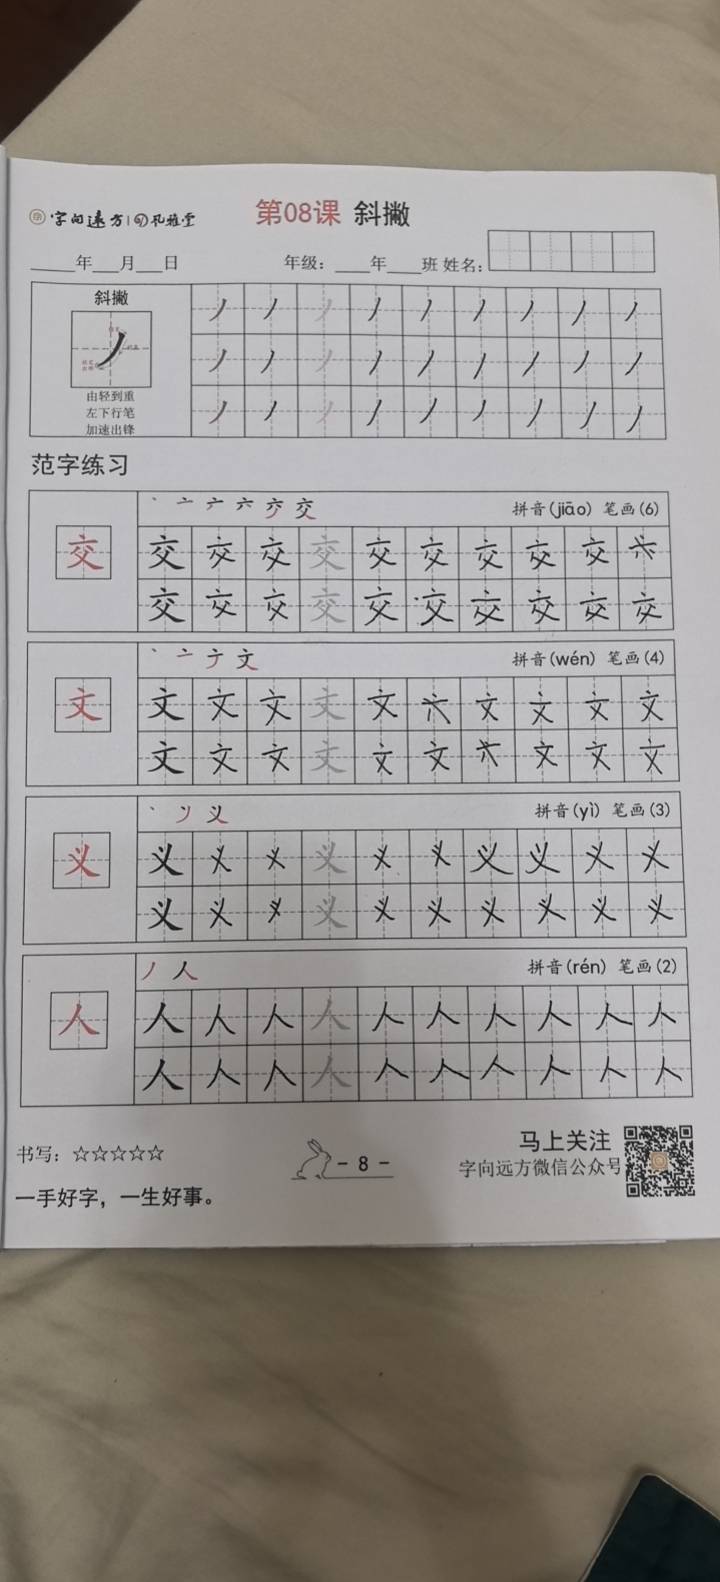 字向远方 | 孔雅堂
第08课 斜撇
____年___月___日 年级：____年____班 姓名：
斜撇
由轻到重
左下行笔
加速出锋
丿 丿 丿 丿 丿 丿 丿 丿 丿
丿 丿 丿 丿 丿 丿 丿 丿 丿
丿 丿 丿 丿 丿 丿 丿 丿 丿
范字练习
丶 亠 六 交 拼音(jiāo) 笔画(6)
交
交 交 交 交 交 交 交 交 交 六
交 交 交 交 交 交 交 交 交 交
丶 亠 文 拼音(wén) 笔画(4)
文
文 文 文 文 文 六 文 文 文 文
文 文 文 文 文 文 六 文 文 文
丶 丷 义 拼音(yì) 笔画(3)
义
义 义 义 义 义 义 义 义 义 义
义 义 义 义 义 义 义 义 义 义
丿 人 拼音(rén) 笔画(2)
人
人 人 人 人 人 人 人 人 人 人
人 人 人 人 人 人 人 人 人 人
书写：☆☆☆☆☆
一手好字，一生好事。
- 8 -
马上关注
字向远方微信公众号